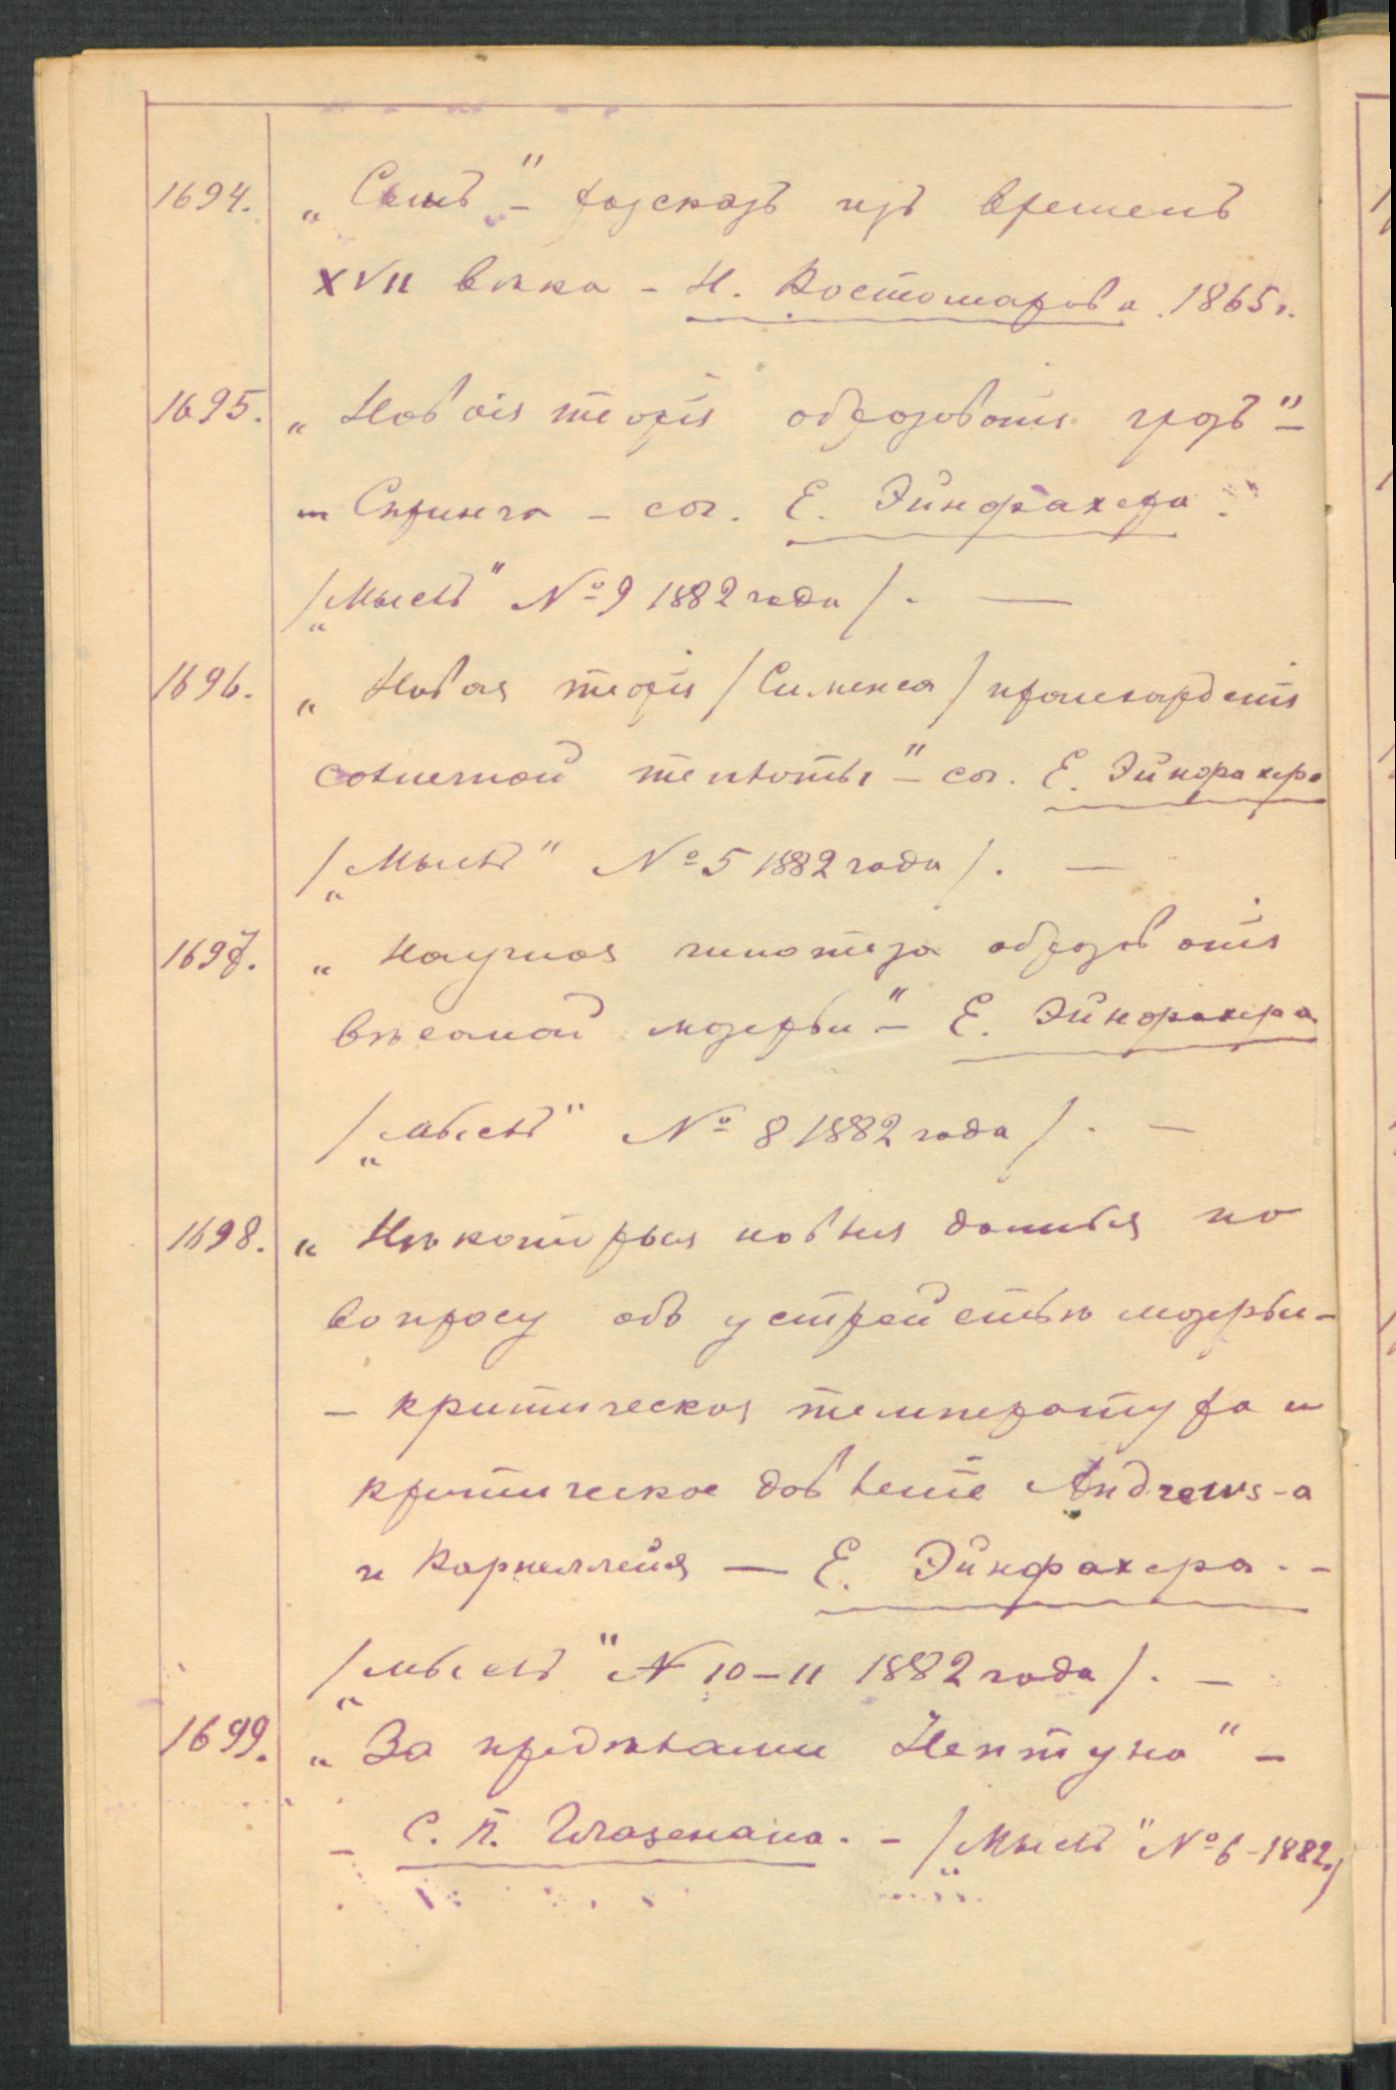 1694. „Сынъ" – разсказъ изъ временъ
XVII вѣка – Н. Костомарова. 1865 г.
1695. „Новая теорія образованія грозъ" –
– Спринга – соч. Е. Эйнфахера.
/„Мысль" № 9 1882 года/. —
1696. „Новая теорія /Сименса/ происхожденія
солнечной теплоты" – соч. Е. Эйнфахера
/„Мысль" № 5 1882 года/. —
1697. „Научная гипотеза образованія
вѣсомой матеріи" – Е. Эйнфахера
/„Мысль" № 8 1882 года/. —
1698. „Нѣкоторыя новыя данныя по
вопросу объ устройствѣ матеріи –
– критическая температура и
критическое давленіе Andrews-а
и Карнеллейя — Е. Эйнфахера. –
/„Мысль" № 10–11 1882 года/. –
1699. „За предѣлами Нептуна" –
– С. П. Глазенапа. – /„Мысль" № 6 – 1882./